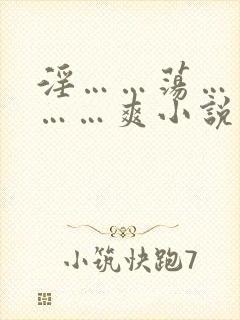 淫……荡…
……爽小説
小筑快跑7